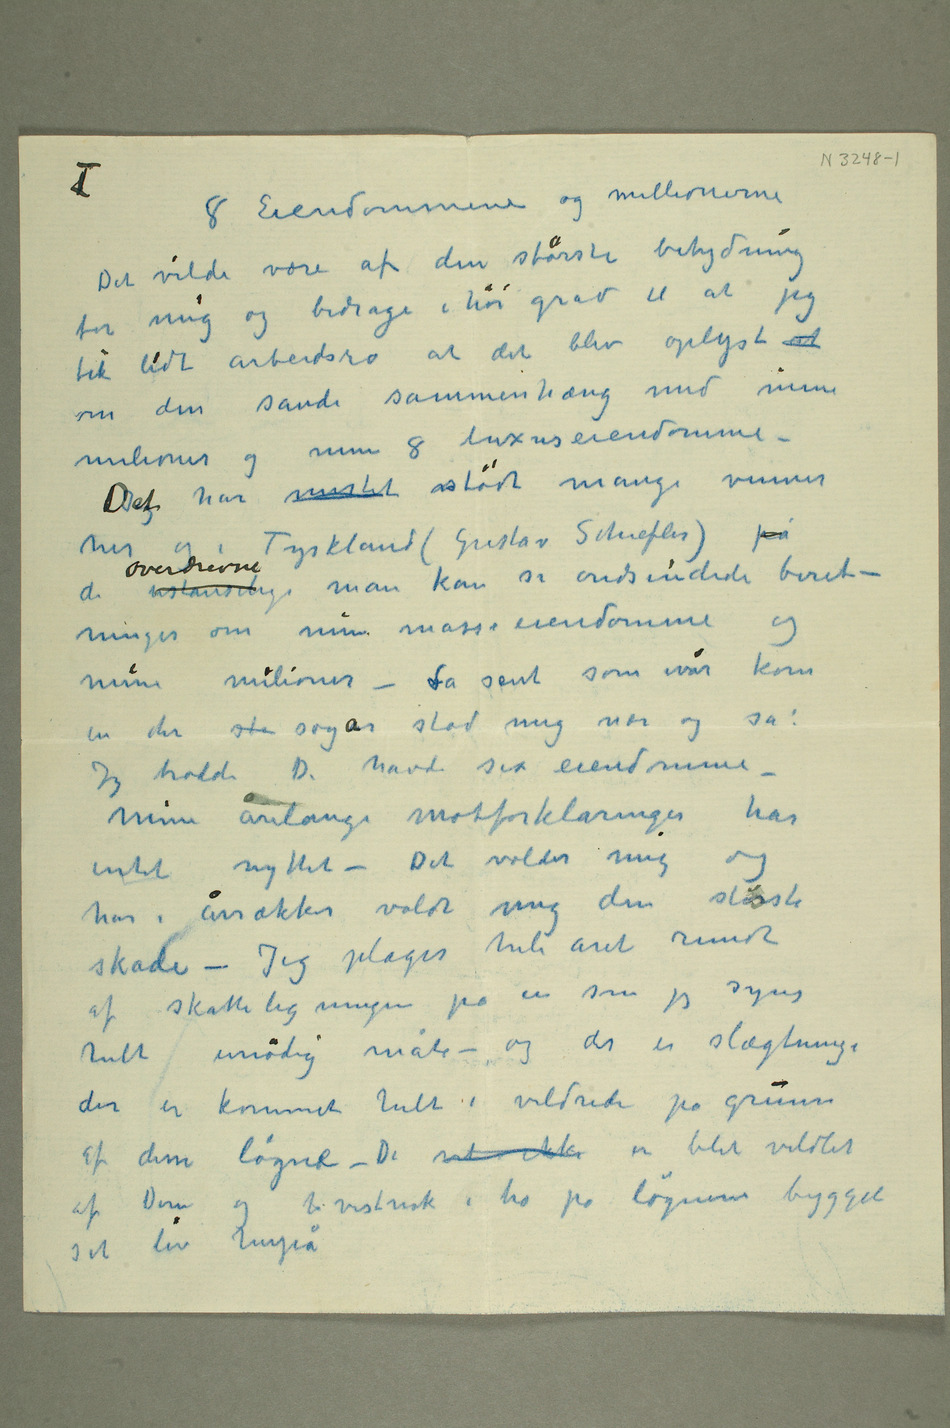 I
N 3248-1
8 Eiendommene og millionerne
Det vilde være af den største betydning
for mig og bidrage i høi grad til at jeg
fik lidt arbeidsro at det blev oplyst at
om den sande sammenhæng med mine
milioner og mine 8 luxuseiendomme –
Det har mistet stødt mange venner
her og i Tyskland (Gustav Schiefler) på
overdrevne
de man kan si ondsindede beret–
ninger om mine masseeiendomme og
mine milioner – Så sent som ivår kom
en der sta sogar stod mig nær og sa:
Jeg trodde De havde sex eiendomme –
Mine årelange motforklaringer har
intet nyttet – Det volder mig og
har i årrækker voldt mig den største
skade – Jeg plages hele året rundt
af skatteligningen på en som jeg synes
helt unødig måte – og der er slægtninge
der er kommet helt i vildrede på grunn
af disse løgne – De vet ikke er blet vildlet
af Dem og på løgnene bygget
sit liv